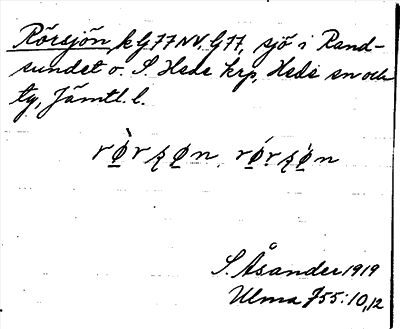 Rörsjön, k G 77 NV, G 77, sjö i Rand-
sundet o. S. Hede krp, Hede sn och
tg, Jämtl. l.
rò̱rʂo̱n, ró̱rʂó̱n
S. Åsander 1919
Ulma 755:10,12